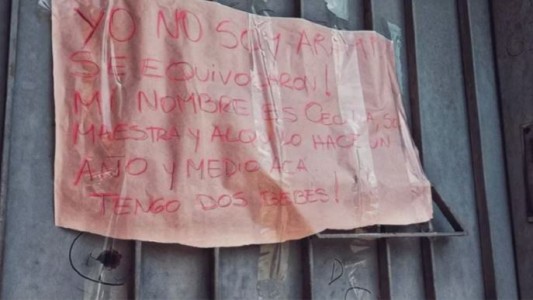 YO NO SOY
SE EQUIVOCARON!
MI NOMBRE ES CECILIA, SOY
MAESTRA Y ALQUILO HACE UN
AÑO Y MEDIO ACA
TENGO DOS BEBES!